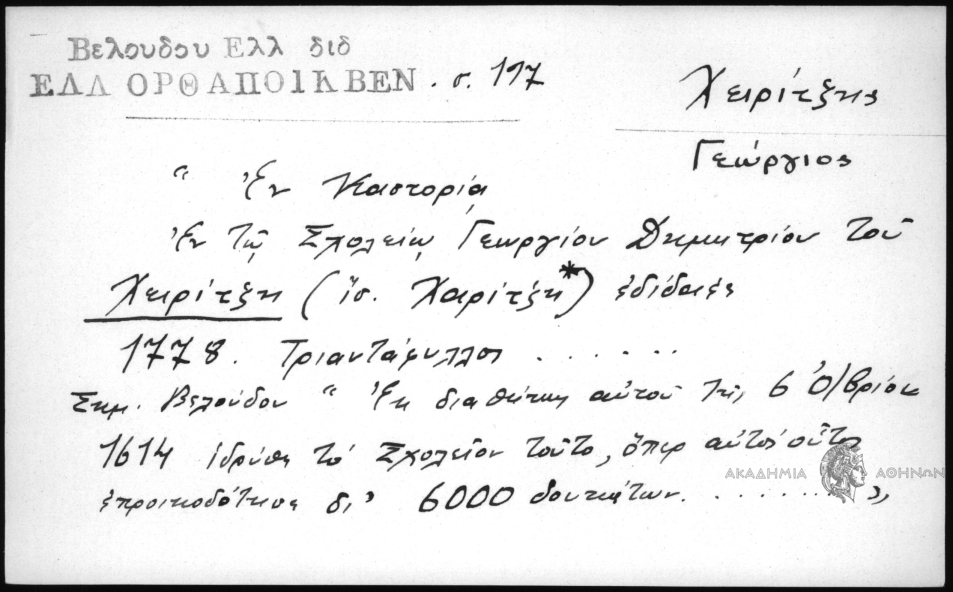 Βελουδου Ελλ διδ
ΕΛΛ ΟΡΘ ΑΠΟΙΚ ΒΕΝ . σ. 117
Χειρίτζης
Γεώργιος
“ Ἐν Καστορίᾳ
Ἐν τῷ Σχολείῳ Γεωργίου Δημητρίου τοῦ
Χειρίτζη (ἴσ. Χαρίτζη*) ἐδίδαξε
1778. Τριαντάφυλλος . . . . . .
Σημ. Βελούδου “ Ἐκ διαθήκης αὐτοῦ τῇ 6 Ὀ/βρίου
1614 ἱδρύθη τὸ Σχολεῖον τοῦτο, ὅπερ αὐτὸς οὗτος
ἐπροικοδότησε δι' 6000 δουκάτων . . . . . . . . „
ΑΚΑΔΗΜΙΑ ΑΘΗΝΩΝ